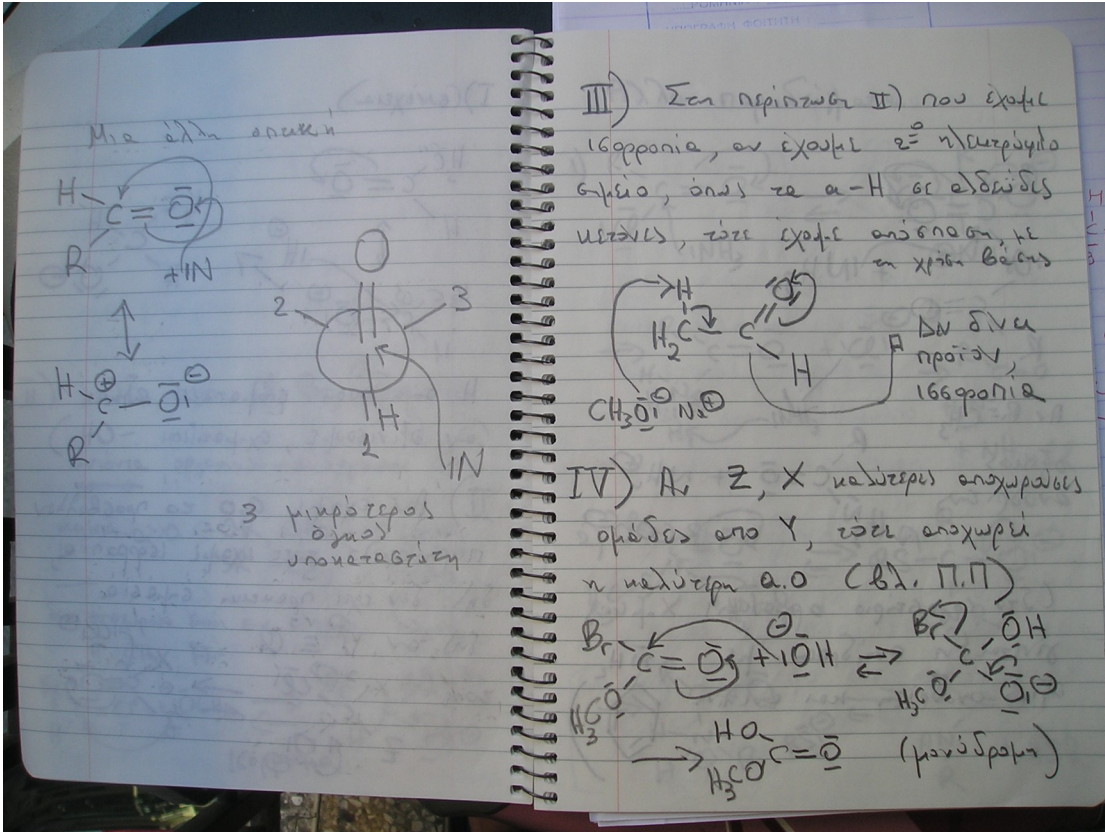 Μια άλλη οπτική
H
C = O
R
+ IN
H ⊕
C — O ⊖
R
O
2 3
H
1
IN
3 μικρότερος
όγκος
υποκαταστάτη
III) Στη περίπτωση II) που έχομε
ισορροπία, αν έχουμε 2º ηλεκτρόφιλο
σημείο, όπως τα α-H σε αλδεΰδες
κετόνες, τότε έχομε απόσπαση, με
τη χρήση βάσης
H O
H2C — C
H
CH3O ⊖ Na ⊕
Δεν δίνει
προϊόν,
ισορροπία
IV) Αν Z, X καλύτερες αποχωρούσες
ομάδες από Y, τότε αποχωρεί
η καλύτερη α.ο (βλ. Π.Π)
Br
C = O + IOH ⊖ ⇌
O
H3C
Br OH
C
H3C O O ⊖
→ HO
H3CO C = O (μονόδρομη)